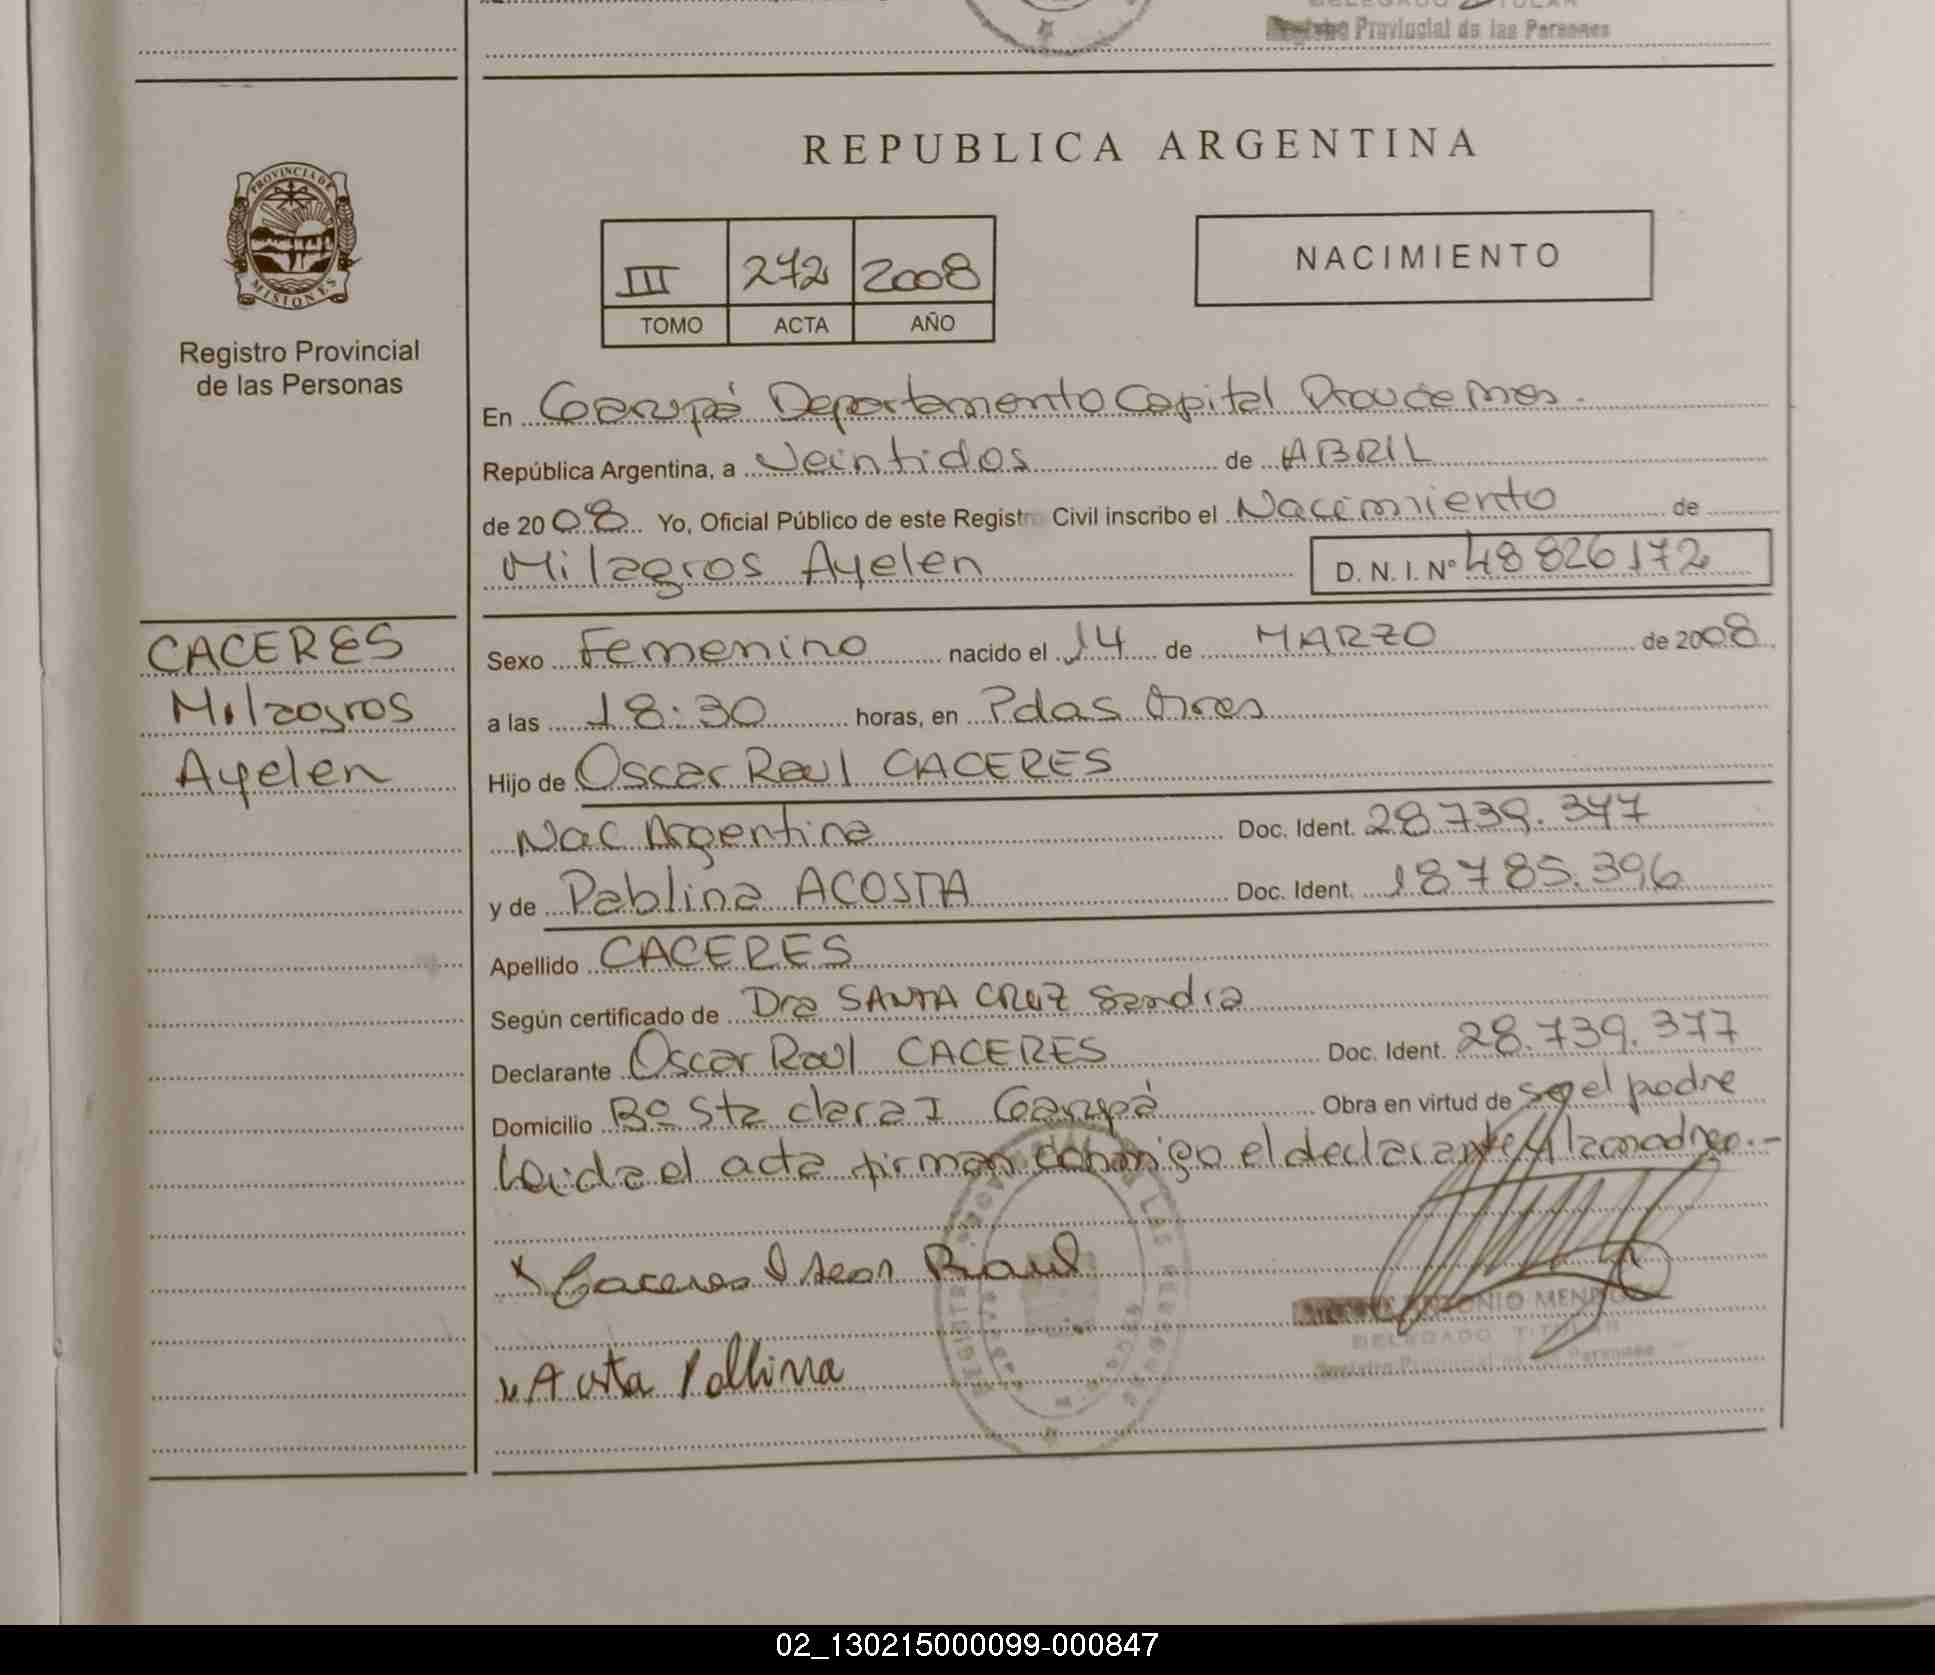 Registro Provincial de las Personas
REPUBLICA ARGENTINA
PROVINCIA DE
MISIONES
Registro Provincial
de las Personas
III 272 2008
TOMO ACTA AÑO
NACIMIENTO
En Garupá Departamento Capital Prov de Mnes.
República Argentina, a Veintidos de ABRIL
de 2008 Yo, Oficial Público de este Registro Civil inscribo el Nacimiento de
Milagros Ayelen D. N. I. Nº 48826172
CACERES
Milagros
Ayelen
Sexo Femenino nacido el 14 de MARZO de 2008
a las 18:30 horas, en Pdas Mnes
Hijo de Oscar Raul CACERES
Nac Argentina Doc. Ident. 28.739.377
y de Pablina ACOSTA Doc. Ident. 18785.396
Apellido CACERES
Según certificado de Dra SANTA CRUZ Sandra
Declarante Oscar Raul CACERES Doc. Ident. 28.739.377
Domicilio Bº Sta clara I Garupá Obra en virtud de ser el padre
Leida el acta firman conmigo el declarante y la madre.-
x Caceres Oscar Raul
ANTONIO
DELEGADO TITULAR
Registro Provincial de las Personas
x Acosta Pablina
02_130215000099-000847